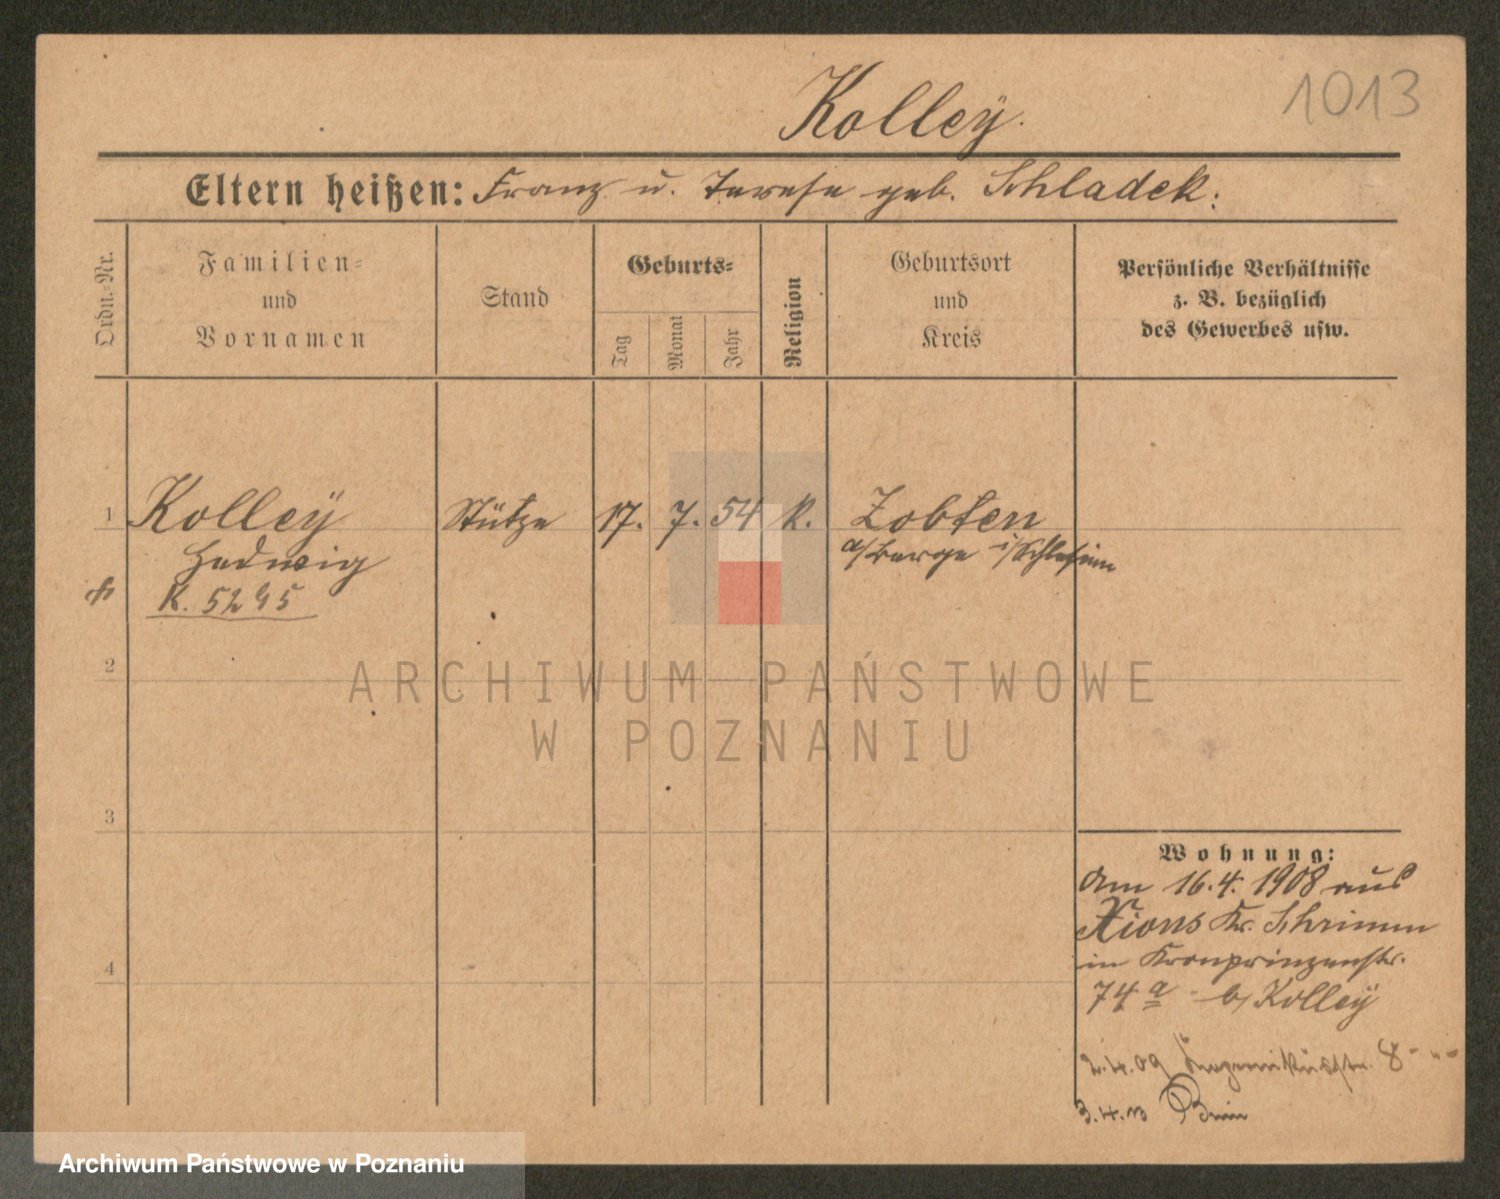 1013
Kolleÿ.
Eltern heißen: Franz u. Terese geb. Schladek.
Ordn.-Nr.
Familien-
und
Vornamen
Stand
Geburts-
Tag
Monat
Jahr
Religion
Geburtsort
und
Kreis
Persönliche Verhältnisse
z. B. bezüglich
des Gewerbes usw.
1 Kolleÿ Stütze 17. 7. 54 K. Zobten
Hedwig a/Berge i/Schlesien
K. 5295
2
ARCHIWUM PAŃSTWOWE
W POZNANIU
3
4
Wohnung:
Am 16.4. 1908 aus
Xions Kr. Schrimm
in Kronprinzenstr.
74a b/ Kolleÿ
2.4.09 8
3.4.13
Archiwum Państwowe w Poznaniu